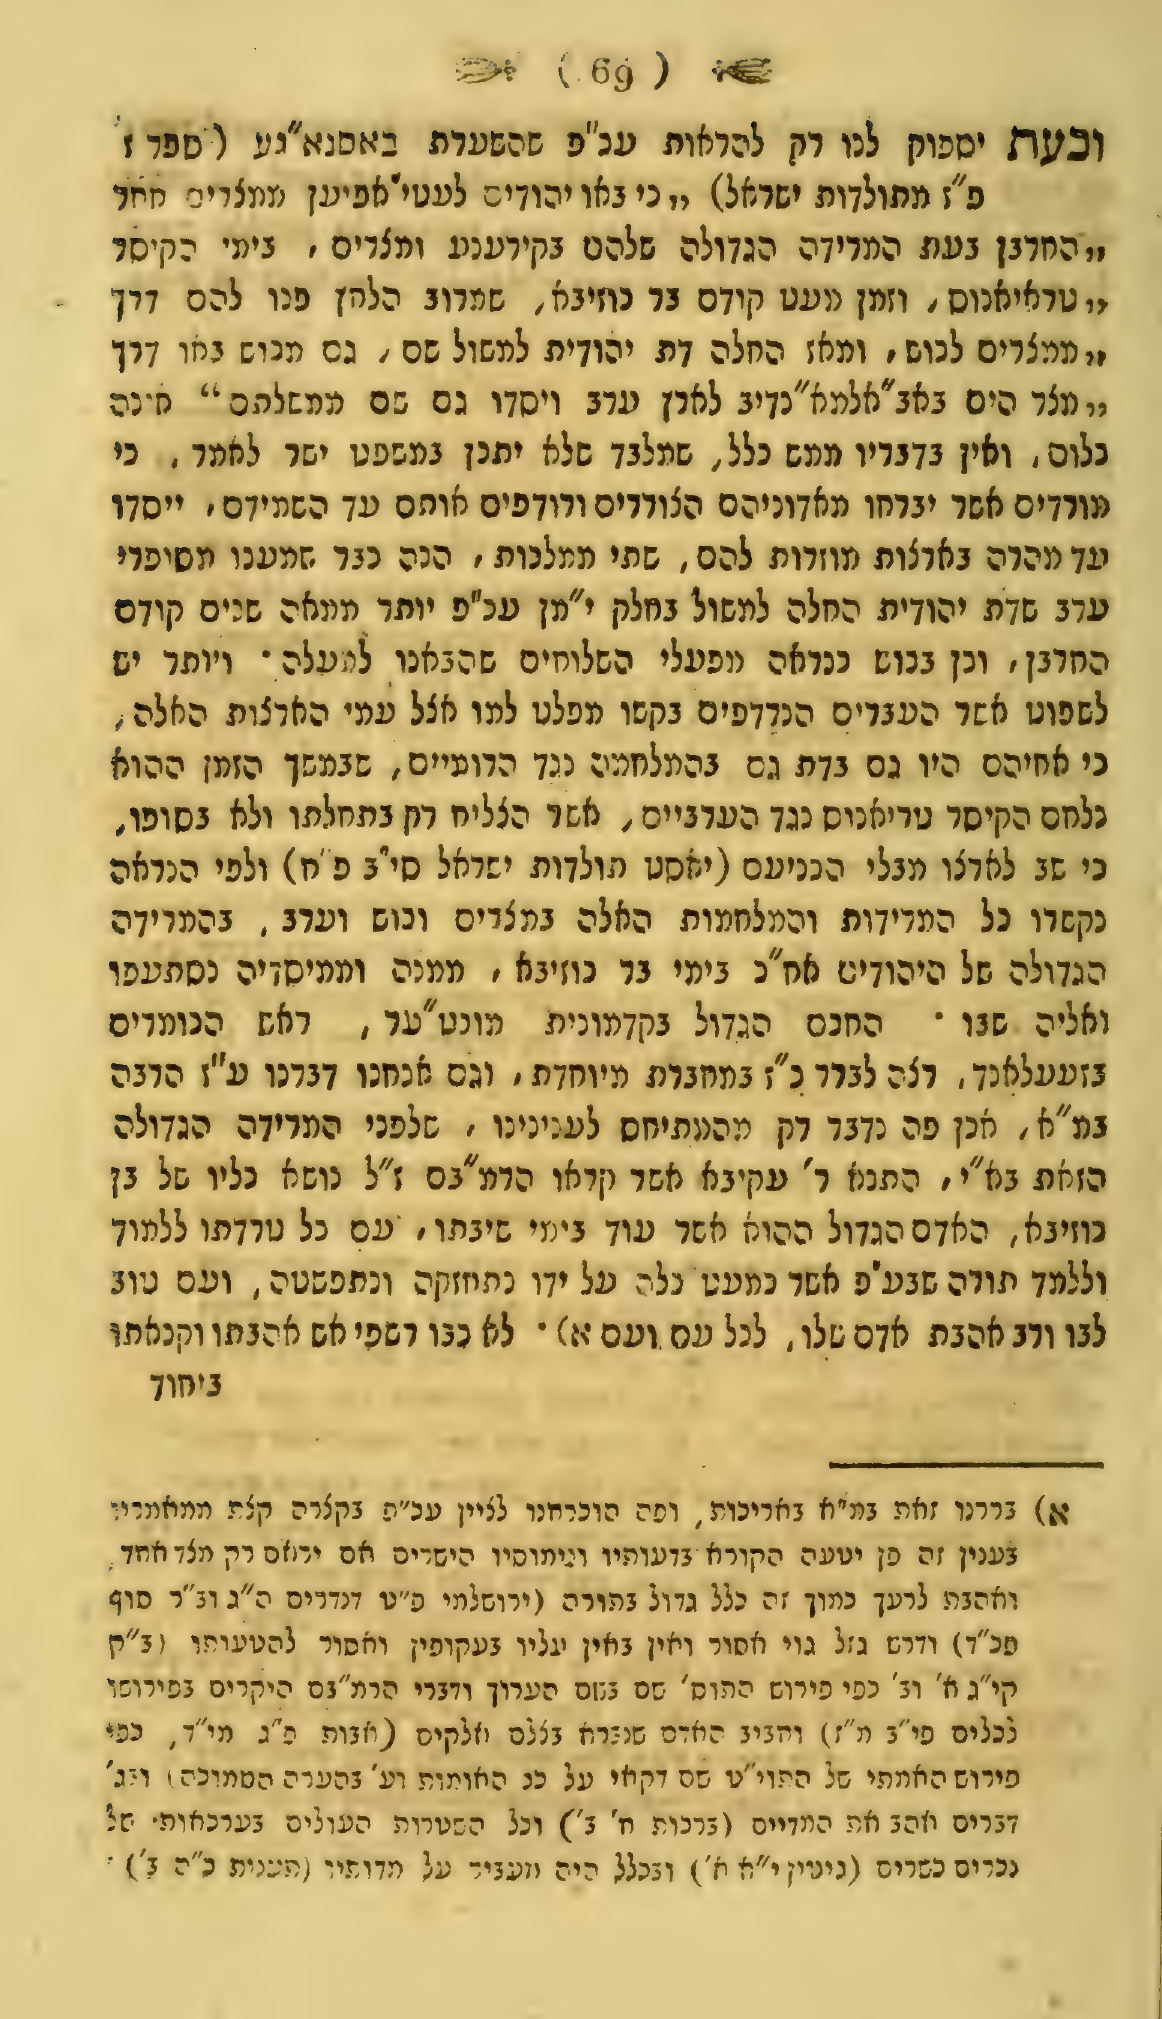 ( 69 )
ובעת יספוק לנו רק להראות עכ"פ שהשערת באסנא"גע (ספר ז'
פ"ז מתולדות ישראל) „כי באו יהודים לעטי'אפיען ממצרים אחר
„החרבן בעת המרידה הגדולה שלהם בקירענע ומצרים, בימי הקיסר
„טראיאנוס, וזמן מעט קודם בר כוזיבא, שמרוב הלחץ פנו להם דרך
„ממצרים לכוש, ומאז החלה דת יהודית למשול שם, גם מכוש באו דרך
„מצר הים באב"אלמא"נדיב לארץ ערב ויסדו גם שם ממשלתם“ אינה
כלום, ואין בדבריו ממש כלל, שמלבד שלא יתכן במשפט ישר לאמר, כי
מורדים אשר יברחו מאדוניהם הצוררים ורודפים אותם עד השמידם, ייסדו
עד מהרה בארצות מוזרות להם, שתי ממלכות, הנה כבר שמענו מסיפרי
ערב שדת יהודית החלה למשול בחלק י"מן עכ"פ יותר ממאה שנים קודם
החרבן, וכן בכוש כנראה מפעלי השלוחים שהבאנו למעלה· ויותר יש
לשפוט אשר העברים הנרדפים בקשו מפלט למו אצל עמי הארצות האלה,
כי אחיהם היו גם בדת גם בהמלחמה נגד הרומיים, שבמשך הזמן ההוא
נלחם הקיסר טריאנוס נגד הערביים, אשר הצליח רק בתחלתו ולא בסופו,
כי שב לארצו מבלי הכניעם (יאסט תולדות ישראל סי"ב פ"ח) ולפי הנראה
נקשרו כל המרידות והמלחמות האלה במצרים וכוש וערב, בהמרידה
הגדולה של היהודים אח"כ בימי בר כוזיבא, ממנה וממיסדיה נסתעפו
ואליה שבו· החכם הגדול בקדמונית מונט"ער, ראש הכומרים
בזעעלאנד, רצה לברר כ"ז במחברת מיוחדת, וגם אנחנו דברנו ע"ז הרבה
במ"א, אכן פה נדבר רק מהמתיחס לענינינו, שלפני המרידה הגדולה
הזאת בא"י, התנא ר' עקיבא אשר קראו הרמ"בם ז"ל נושא כליו של בן
כוזיבא, האדם הגדול ההוא אשר עוד בימי שיבתו, עם כל טרדתו ללמוד
וללמד תורה שבע"פ אשר כמעט כלה על ידו נתחזקה ונתפשטה, ועם טוב
לבו ורב אהבת אדם שלו, לכל עם ועם א)· לא כבו רשפי אש אהבתו וקנאתו
ביחוד
א) בררנו זאת במ"א באריכות, ופה הוכרחנו לציין עכ"פ בקצרה קצת ממאמריו
בענין זה פן יטעה הקורא בדעותיו ונימוסיו הישרים אם יראם רק מצד אחד,
ואהבת לרעך כמוך זה כלל גדול בתורה (ירושלמי פ"ט דנדרים ה"ג וב"ר סוף
פכ"ד) ודרש גזל גוי אסור ואין באין עליו בעקופין ואסור להטעותו (ב"ק
קי"ג א' וב' כפי פירוש התוס' שם בשם הערוך ודברי הרמ"בם היקרים בפירושו
לכלים פי"ב מ"ז) וחביב האדם שנברא בצלם אלקים (אבות פ"ג מי"ד, כפי
פירוש האמתי של התוי"ט שם דקאי על כב האומות וע' בהערה הסמוכה) ובג'
דברים אהב את המדיים (ברכות ח' ב') וכל השטרות העולים בערכאות של
נכרים כשרים (גיטין י"א א') ובכלל היה מעביר על מדותיו (תענית כ"ה ב')·